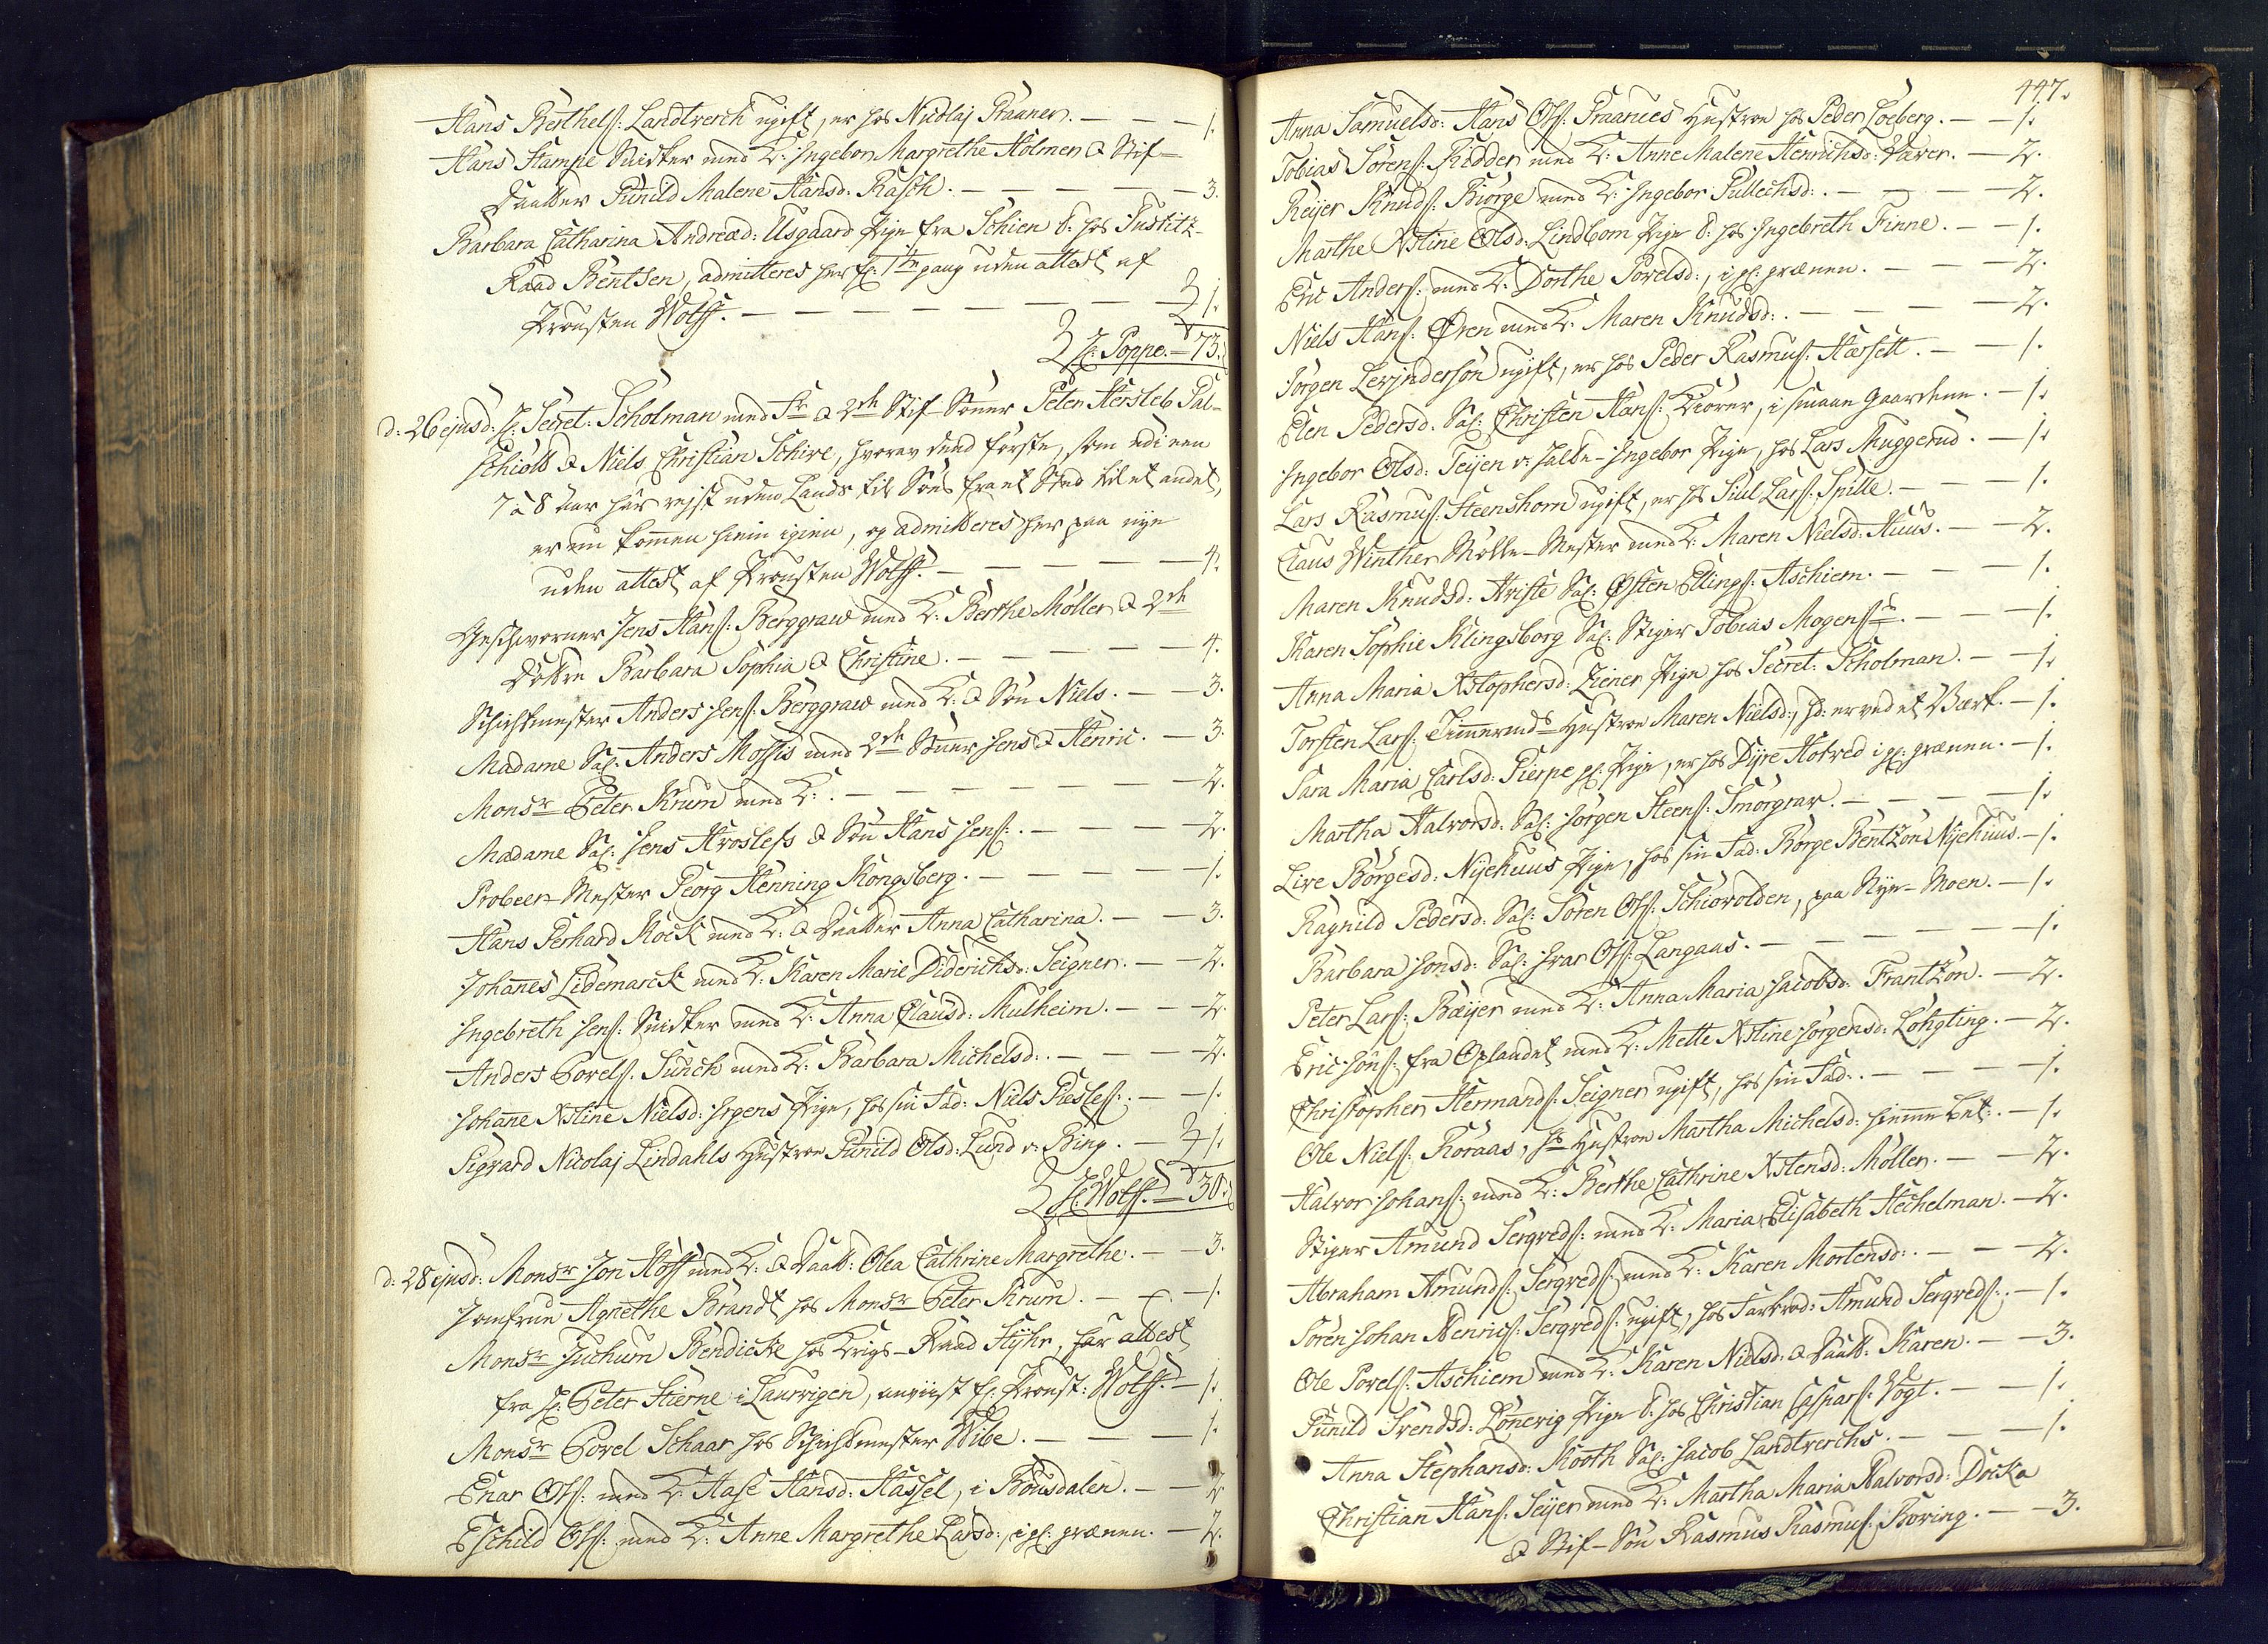 Hans Berthels: Landtverch ugift, er hos Nicolaj Praaner. — — — 1.
Hans Stampe Snidker med K: Ingebor Margrethe Holmen & Stif-
daatter Gunild Malene Hansd: Rasch. — — — — — 3.
Barbara Catharina Andread: Usgaard Pige fra Schien t: hos Justitz-
Raad Bentsen, admitteres her 1te gang uden attest af
Provsten Wolff. — — — — — — 1.
H: Poppe. — 73.
d: 26 ejusd: H: Secret: Scholman med Fr & 2de Stif-Sønner Peter Hersleb Gul-
schiott & Niels Christian Schive, hvorav dend første, som udi een
7 à 8 aar har rejst uden Lands til Søes fra et Sted til et andet,
er nu kommen hiem igien, og admitteres her paa nye
uden attest af Provsten Wolff. — — — — 4.
Geschworner Jens Hans: Berggraw med K: Berthe Møller & 2de
Døttre Barbara Sophia & Christine. — — — — — 4.
Schichtmester Anders Jens: Berggraw med K: & Søn Niels. — — 3.
Madame Sal: Anders Mossis med 2de Sønner Jens & Henric. — 3.
Monsr Peter Krum med K:. — — — — — — 2.
Madame Sal: Jens Hrosless & Søn Hans Jens:. — — — 2.
Probeer-Mester Georg Henning Kongsberg. — — — — 1.
Hans Gerhard Kock med K: & Daatter Anna Catharina. — — 3.
Johannes Lidemarck med K: Karen Marie Diderichsd: Seigner. — — 2.
Ingebreth Jens: Snidker med K: Anna Clausd: Mulheim. — — 2.
Anders Povels: Sunch med K: Barbara Michelsd:. — — — 2.
Johanne Xstine Nielsd: Irgens Pige, hos sin Fad: Niels — — 1.
Sigvard Nicolaj Lindahls Hustroe Gunild Olsd: Lund v: Bing. — 1.
H: Wolff. — 30.
d: 28 ejusd: Monsr Jon Hoff med K: & Daatt: Olea Cathrine Margrethe. — — 3.
Jomfrue Agnethe Brandt hos Monsr Peter Krum. — — — 1.
Monsr Juchum Bendicke hos Krigs-Raad Hyhr, har attest
fra H: Peter Stierne i Laurvigen, anviist H: Provst: Wolff. — 1.
Monsr Povel Schaar hos Schichtmester Wibe. — — — 1.
Enar Ols: med K: Aase Hansd: Hassel, i Rousdalen. — — 2.
Eschild Ols: med K: Anne Margrethe Larsd:, i gl: grænen. — 2.
447.
Anna Samuelsd: Hans Ols: Praanees Hustroe hos Peder Loeberg. — — 1.
Tobias Sørens: Ridder med K: Anne Malene Henrichsd: Væver. — 2.
Reijer Knuds: Biørge med K: Ingebor Gullechsd:. — — — 2.
Marthe Xstine Olsd: Lindbom Pige t: hos Ingebreth Finne. — — 1.
Eric Anders: med K: Dorthe Povelsd:, i gl: grænen. — — — 2.
Niels Hans: Øren med K: Maren Knudsd:. — — — — 2.
Jørgen Levjnderson ugift, er hos Peder Rasmus: Harsett. — — 1.
Elen Pedersd: Sal: Christen Hans: Kiører, i smaae Gaardene. — 1.
Ingebor Olsd: Teijen v: halte-Ingebor Pige, hos Lars Muggerud. — 1.
Lars Rasmus: Steenshorn ugift, er hos Siul Lars: Spille. — — 1.
Claus Winther Mølle-Mester med K: Maren Nielsd: Huus. — — 2.
Maren Knudsd: Hviste Sal: Østen Ellings: Aschiem. — — — 1.
Karen Sophie Klingsborg Sal: Stiger Tobias Mogens:. — — 1.
Anna Maria Xstophersd: Ziener Pige hos Secret: Scholman. — — 1.
Torsten Lars: Timmermds Hustroe Maren Nielsd:, hd: er ved et Værk. — 1.
Sara Maria Carlsd: Pierpe gl: Pige, er hos Dyre Hotved i gl: grænen. — 1.
Martha Halvorsd: Sal: Jørgen Steens: Smørgrav. — — — — 1.
Live Børgesd: Nyehuus Pige, hos sin Fad: Børge Bentzøn Nyehuus. — 1.
Ragnild Pedersd: Sal: Søren Ols: Schiovolden, paa Nye-Moen. — 1.
Barbara Jonsd: Sal: Ivar Ols: Langaas. — — — — — — 1.
Peter Lars: Bæijer med K: Anna Maria Jacobsd: Frantzøn. — 2.
Eric Jons: fra Oplandet med K: Mette Xstine Jørgensd: Løhgting. — 2.
Christopher Hermands: Seigner ugift, hos sin Fad:. — — — 1.
Ole Niels: Røraas, hs Hustroe Martha Michelsd: hiemme bet:. — 1.
Halvor Johans: med K: Berthe Cathrine Xstensd: Møller. — — 2.
Stiger Amund Sergveds: med K: Maria Elisabeth Hechelman. — 2.
Abraham Amunds: Sergveds: med K: Karen Mortensd:. — — 2.
Søren Johan Henrics: Sergveds: ugift, hos Farbrod: Amund Sergveds:. — 1.
Ole Povels: Aschiem med K: Karen Nielsd: & Daatt: Karen. — — 3.
Gunild Svendsd: Lønevig Pige t: hos Christian Caspars: Vogt. — — 1.
Anna Stephansd: Kooth Sal: Jacob Landtverchs. — — — 1.
Christian Hans: Seijer med K: Martha Maria Halvorsd: Docka
& Stif-Søn Rasmus Rasmus: Boring. — — 3.